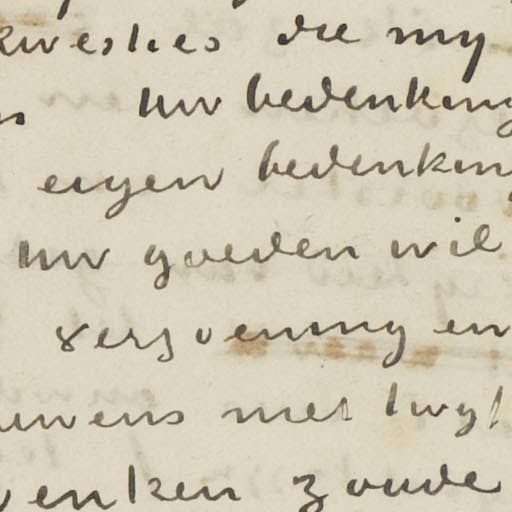 kwesties die my
Uw bedenking
eigen bedenkin
Uw goeden wil
verzoening en
uwens met twyf
enken zoude